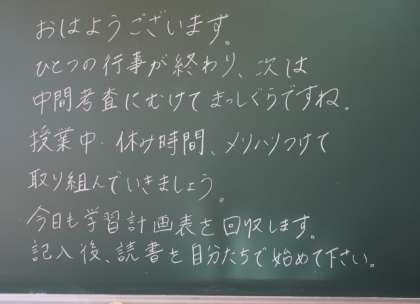 おはようございます。
ひとつの行事が終わり、次は
中間考査にむけてまっしぐらですね。
授業中・休み時間、メリハリつけて
取り組んでいきましょう。
今日も学習計画表を回収します。
記入後、読書を自分たちで始めて下さい。